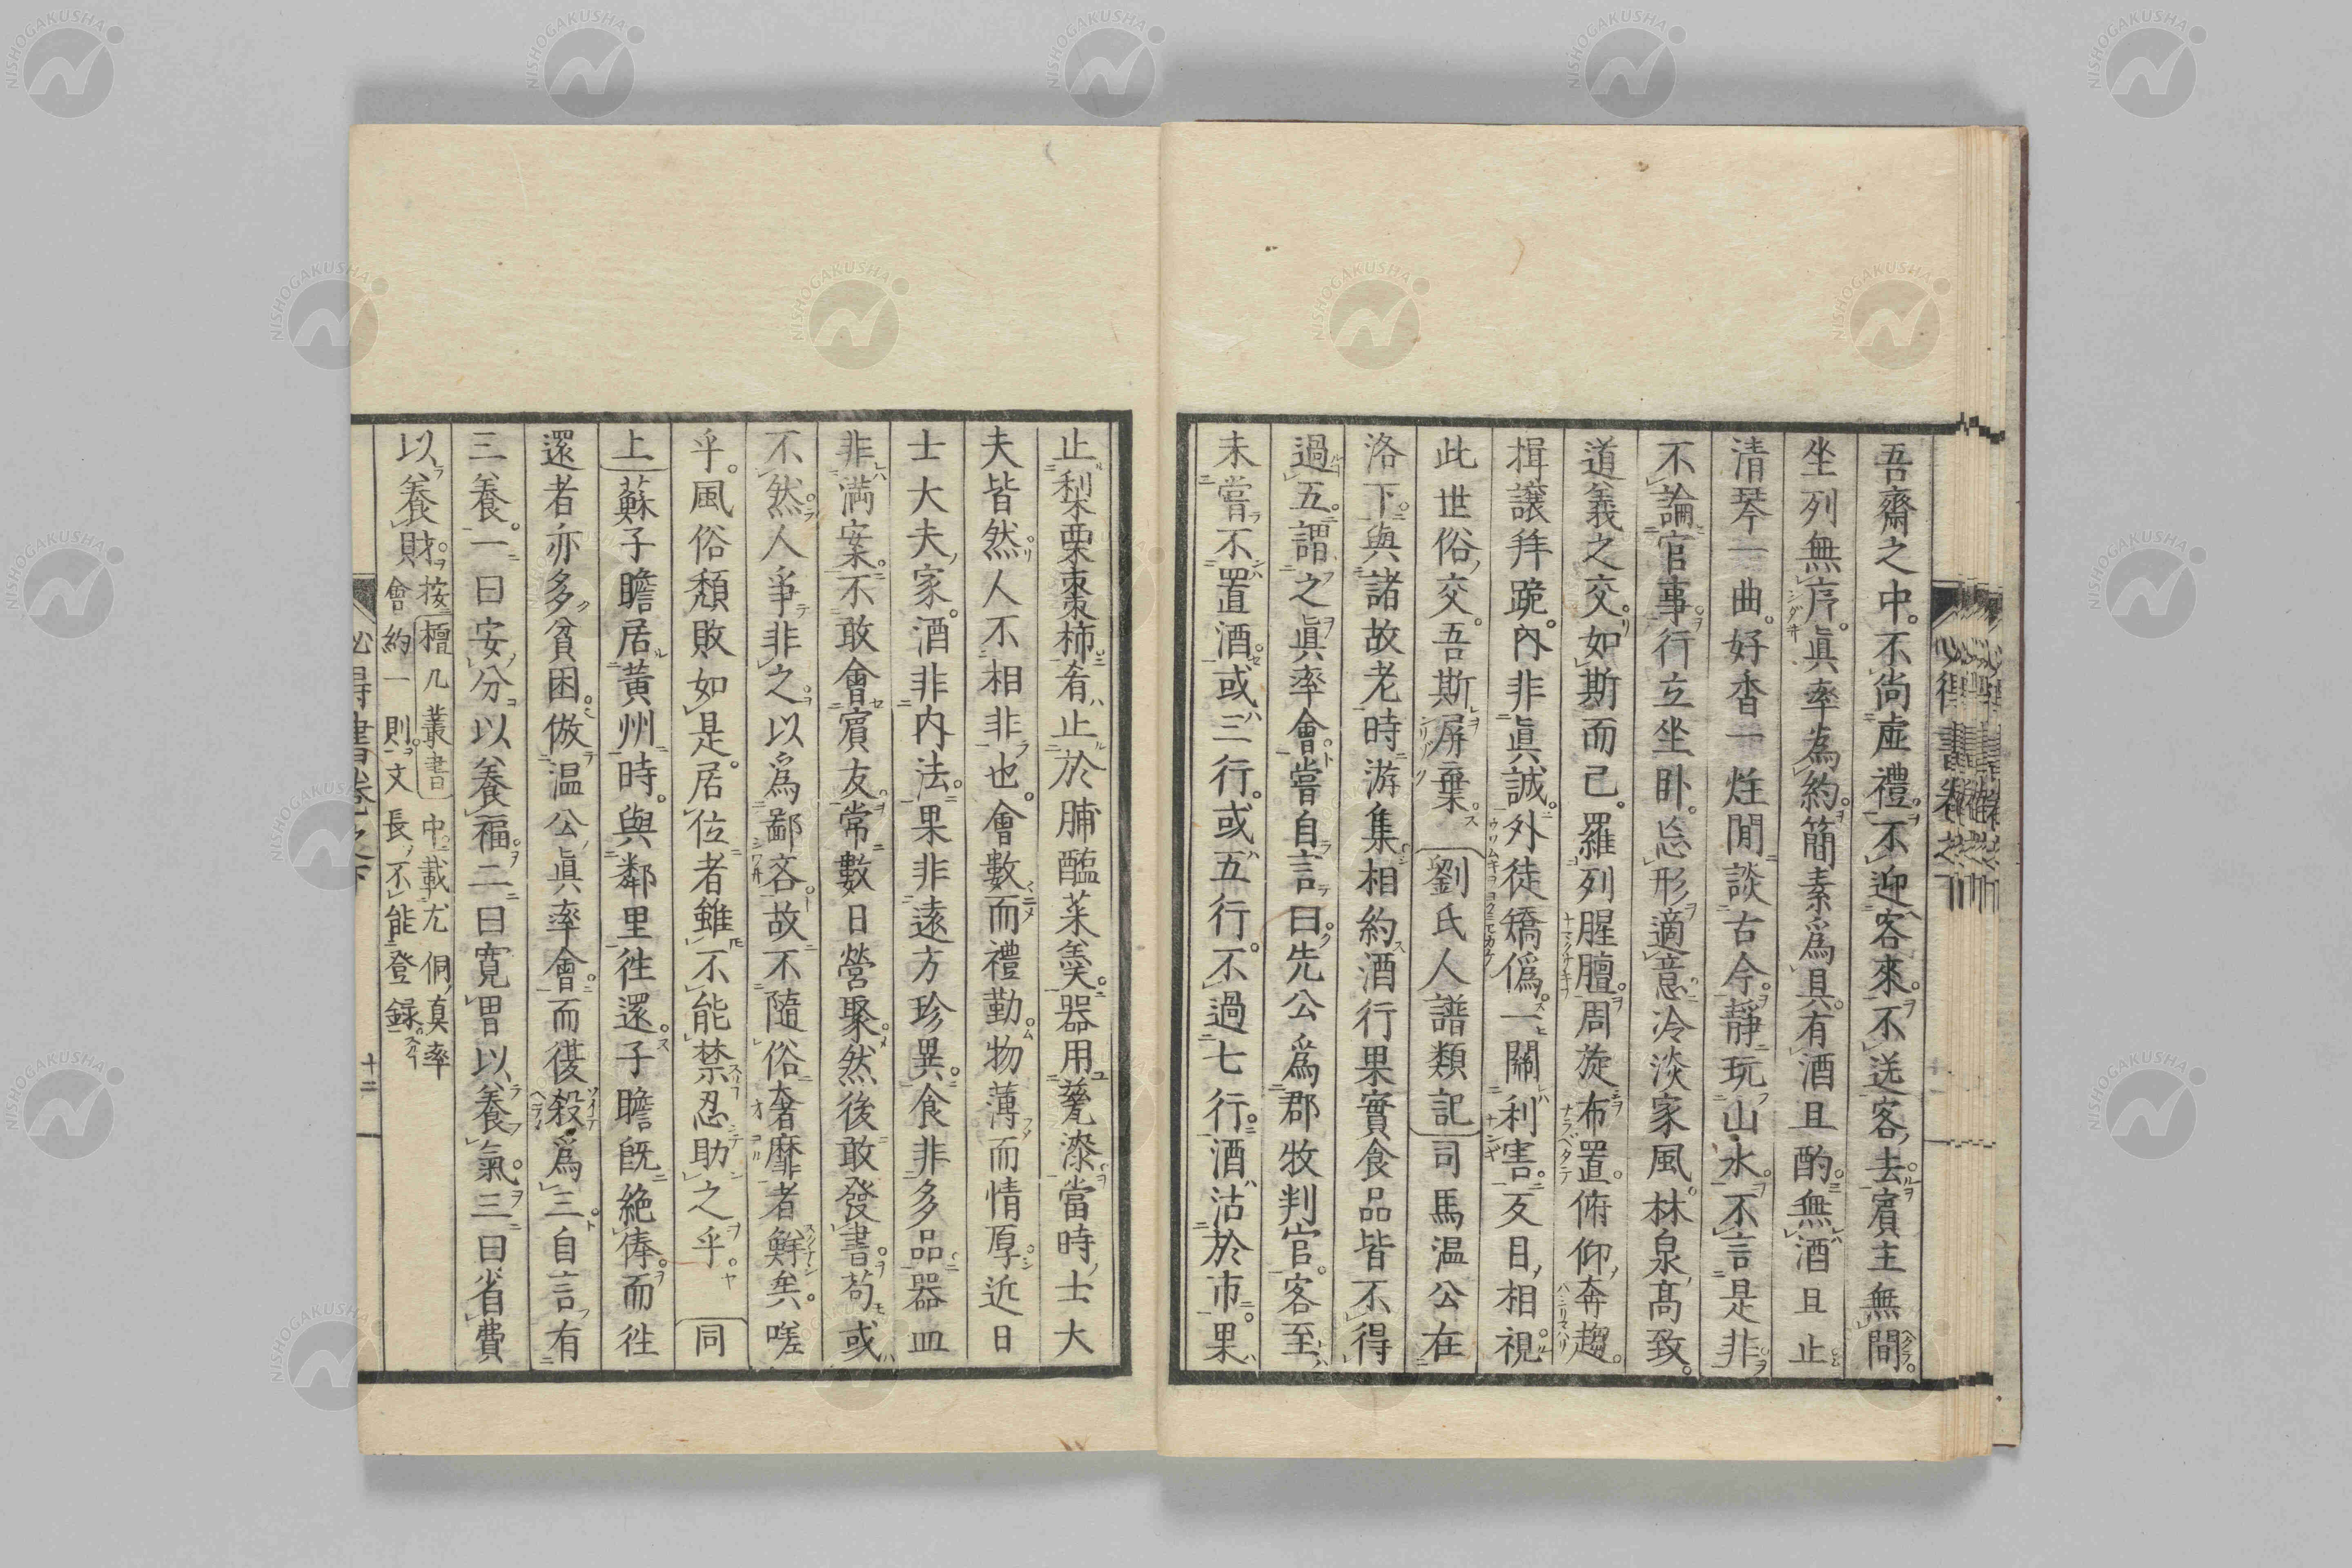 吾齋之中。不尚虛禮。不迎客來。不送客去。賓主無間。
坐列無序。眞率為約。簡素爲具。有酒且酌。無酒且止
清琴一曲。好香一炷。閒談古今。靜玩山水。不言是非。
不論官事。行立坐臥。忘形適意。冷淡家風。林泉髙致。
道義之交。如斯而已。羅列腥膻。周旋布置。俯仰奔趨。
揖讓拜跪。內非眞誠。外徒矯僞。一關利害。反目相視。
此世俗交。吾斯屏棄。劉氏人譜類記司馬温公在
洛下。與諸故老時游集。相約酒行果實食品皆不得
過五。謂之眞率會。嘗自言曰。先公爲郡牧判官。客至
未嘗不置酒。或三行。或五行。不過七行。酒沽於市。果
止梨栗棗柿。肴止於脯醢菜羹。器用甆漆。當時士大
夫皆然。人不相非也。會數而禮勤。物薄而情厚。近日
士大夫家。酒非內法。果非遠方珍異。食非多品。器皿
非満案。不敢會賓友。常數日營聚。然後敢發書。苟或
不然。人爭非之。以爲鄙吝。故不隨俗奢靡者鮮矣。嗟
乎。風俗頹敗如是。居位者雖不能禁。忍助之乎。同
上蘇子瞻居黃州時。與鄰里往還。子瞻既絶俸。而往
還者亦多貧困。倣温公眞率會。而復殺爲三。自言有
三養。一曰安分以養福。二曰寛胃以養氣。三曰省費
以養財。按檀几叢書中載尤侗眞率
會約一則。文長不能登録。
心得書卷之下
十二
NISHOGAKUSHA